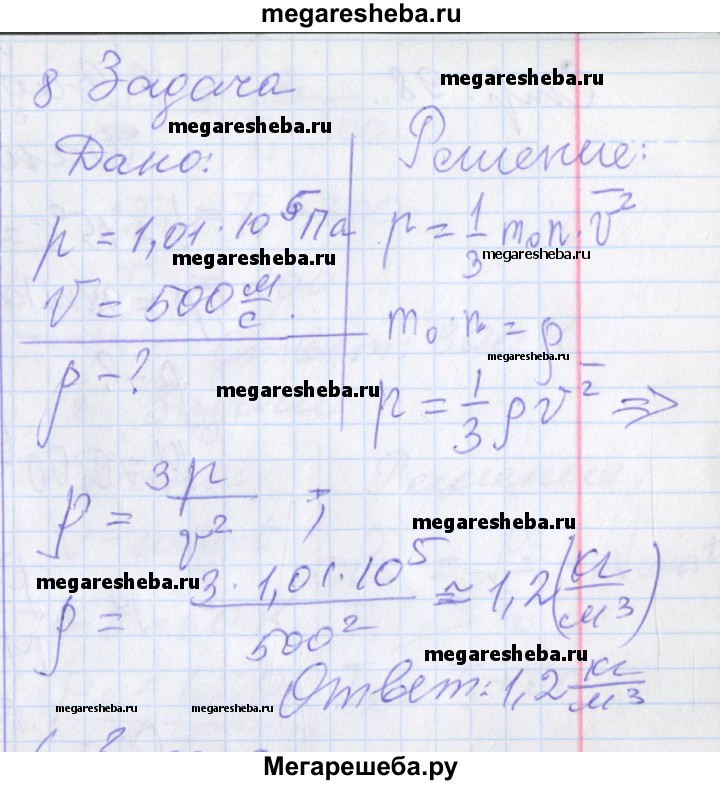 megaresheba.ru
8 Задача
megaresheba.ru
megaresheba.ru
Дано:
Решение:
p = 1,01 · 10⁵ Па
p = 1/3 m₀n · v̅²
megaresheba.ru
megaresheba.ru
v = 500 м/с.
m₀ · n = ρ
megaresheba.ru
ρ - ?
megaresheba.ru
p = 1/3 ρv̅² ⇒
ρ = 3p/v² ;
megaresheba.ru
megaresheba.ru
ρ = 3 · 1,01 · 10⁵/500² ≈ 1,2 (кг/м³)
megaresheba.ru
Ответ: 1,2 кг/м³
megaresheba.ru
megaresheba.ru
Мегарешеба.ру